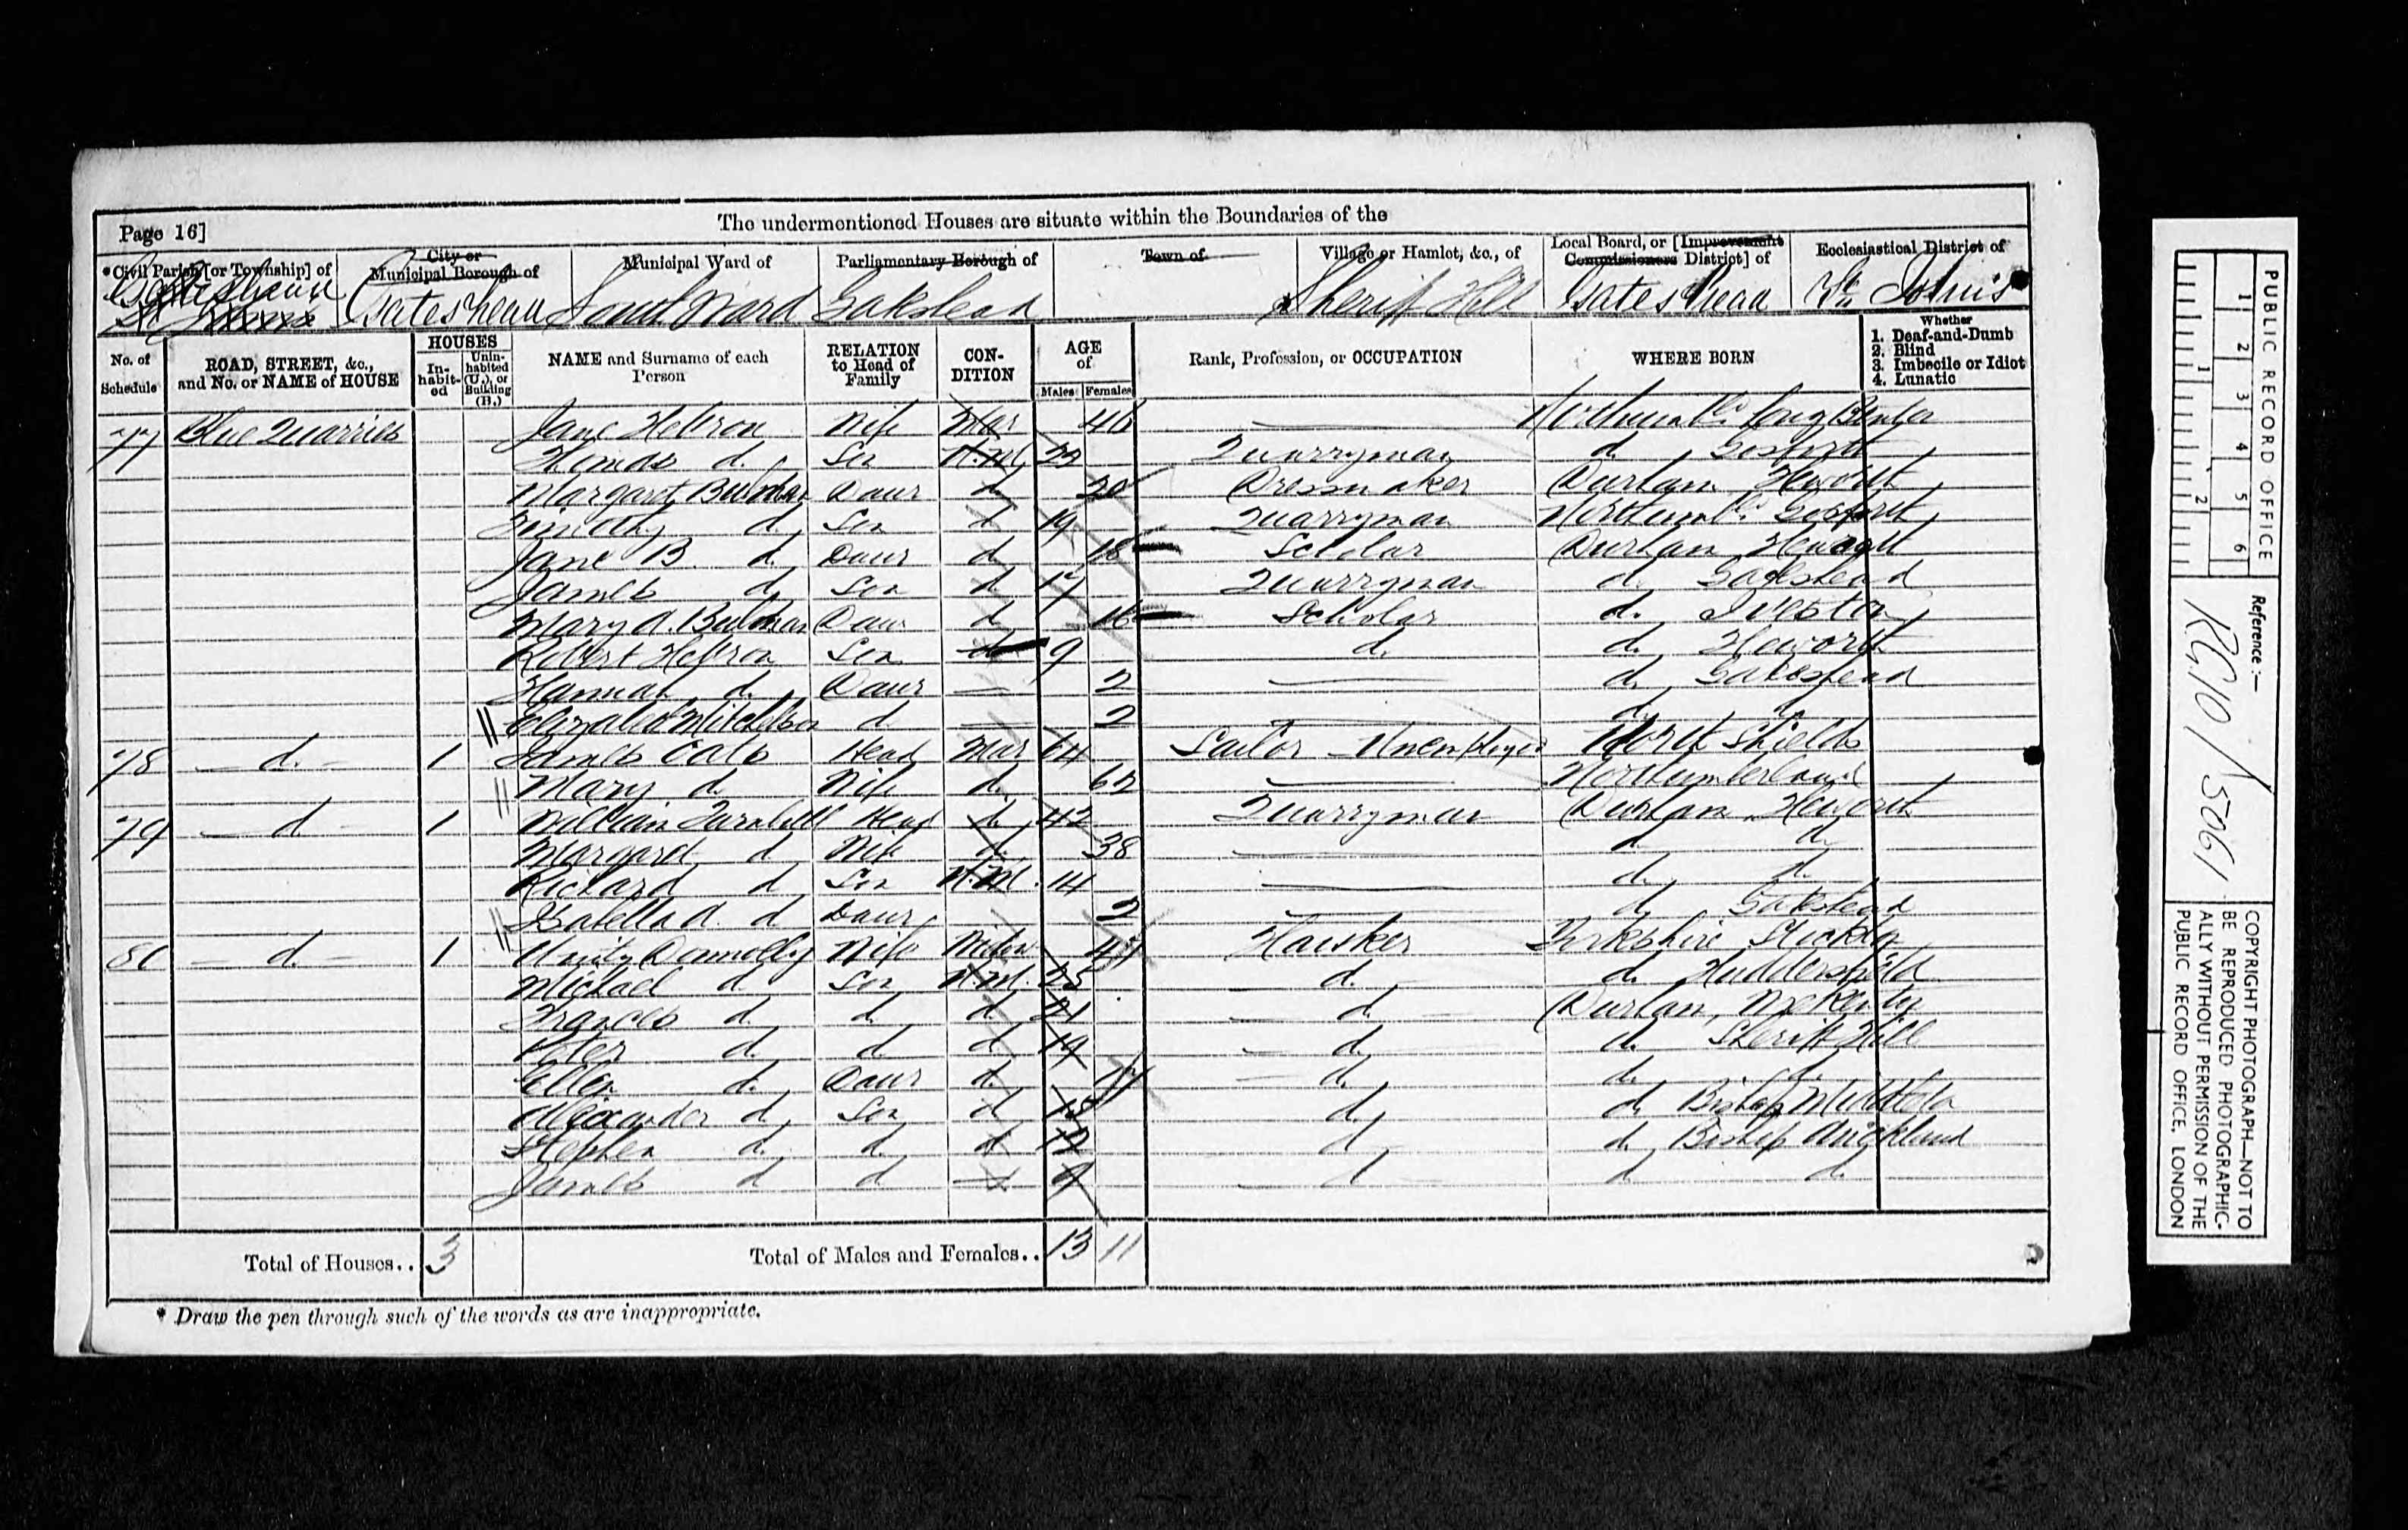 Page 16]
The undermentioned Houses are situate within the Boundaries of the
*Civil Parish [or Township] of
City or Municipal Borough of
Municipal Ward of
Parliamentary Borough of
Town of
Village or Hamlet, &c., of
Local Board, or [Improvement Commissioners District] of
Ecclesiastical District of
Gateshead Gateshead South Ward Gateshead Sheriff Hill Gateshead St. John's
No. of Schedule
ROAD, STREET, &c., and No. or NAME of HOUSE
HOUSES
In-habit-ed
Unin-habited (U.), or Building (B.)
NAME and Surname of each Person
RELATION to Head of Family
CON-DITION
AGE of
Males Females
Rank, Profession, or OCCUPATION
WHERE BORN
Whether
1. Deaf-and-Dumb
2. Blind
3. Imbecile or Idiot
4. Lunatic
77 Blue Quarries Jane Hebron Wife Mar 46 Northumbd. Long Benton
Thomas d. Son N.M. 23 Quarryman d. Gosforth
Margaret Daur d. 20 Dressmaker Durham Heworth
Timothy d. Son d. 19 Quarryman Northumbd. Gosforth
Jane B. d. Daur d. 18 Scholar Durham Heworth
James d. Son d. 17 Quarryman d. Gateshead
Mary A. Daur d. 16 Scholar d.
Robert Hebron Son d. 9 d. d. Heworth
Hannah d. Daur — 2 — d. Gateshead
Elizabeth Mitchelson d. — 2 — d. d.
78 — d. — 1 James Head Mar 64 Sailor Unemployed North Shields
Mary d. Wife d. 62 — Northumberland
79 — d. — 1 William Turnbull Head d. 42 Quarryman Durham Heworth
Margaret d. Wife d. 38 — d. d.
Richard d. Son N.M. 14 — d. d.
Isabella A. d. Daur 2 — d. Gateshead
80 — d. — 1 Unity Donnolly Wife Widow Hawker Yorkshire
Michael d. Son N.M. 25 d. d. Huddersfield
Frances d. d. d. 21 d. Durham,
Peter d. d. d. 19 d. d. Sheriff Hill
Ellen d. Daur d. 17 d. d. d.
Alexander d. Son d. 15 d. d. Bishop
Stephen d. d. d. 12 d. d. Bishop Auckland
James d. d. d. d. d. d.
Total of Houses.. 3
Total of Males and Females.. 13 11
* Draw the pen through such of the words as are inappropriate.
PUBLIC RECORD OFFICE
1 2 3 4 5 6
1 2
Reference:—
RG 10 / 5061
COPYRIGHT PHOTOGRAPH—NOT TO
BE REPRODUCED PHOTOGRAPHIC-
ALLY WITHOUT PERMISSION OF THE
PUBLIC RECORD OFFICE, LONDON